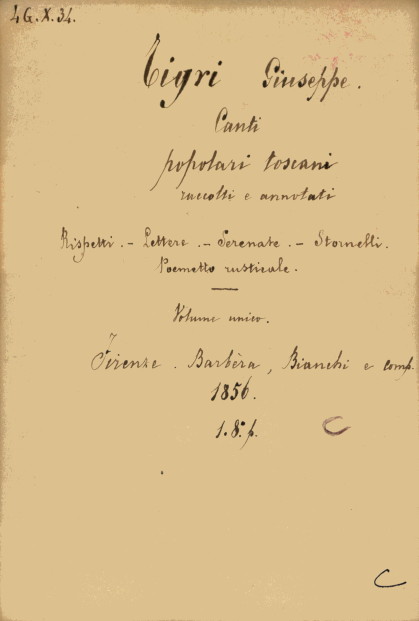 4G.X.34.
Tigri Giuseppe.
Canti
popolari toscani
raccolti e annotati
Rispetti. - Lettere. - Serenate. - Stornelli.
Poemetto rusticale.
Volume unico.
Firenze. Barbèra, Bianchi e comp.
1856.
1.8.p.
C
C